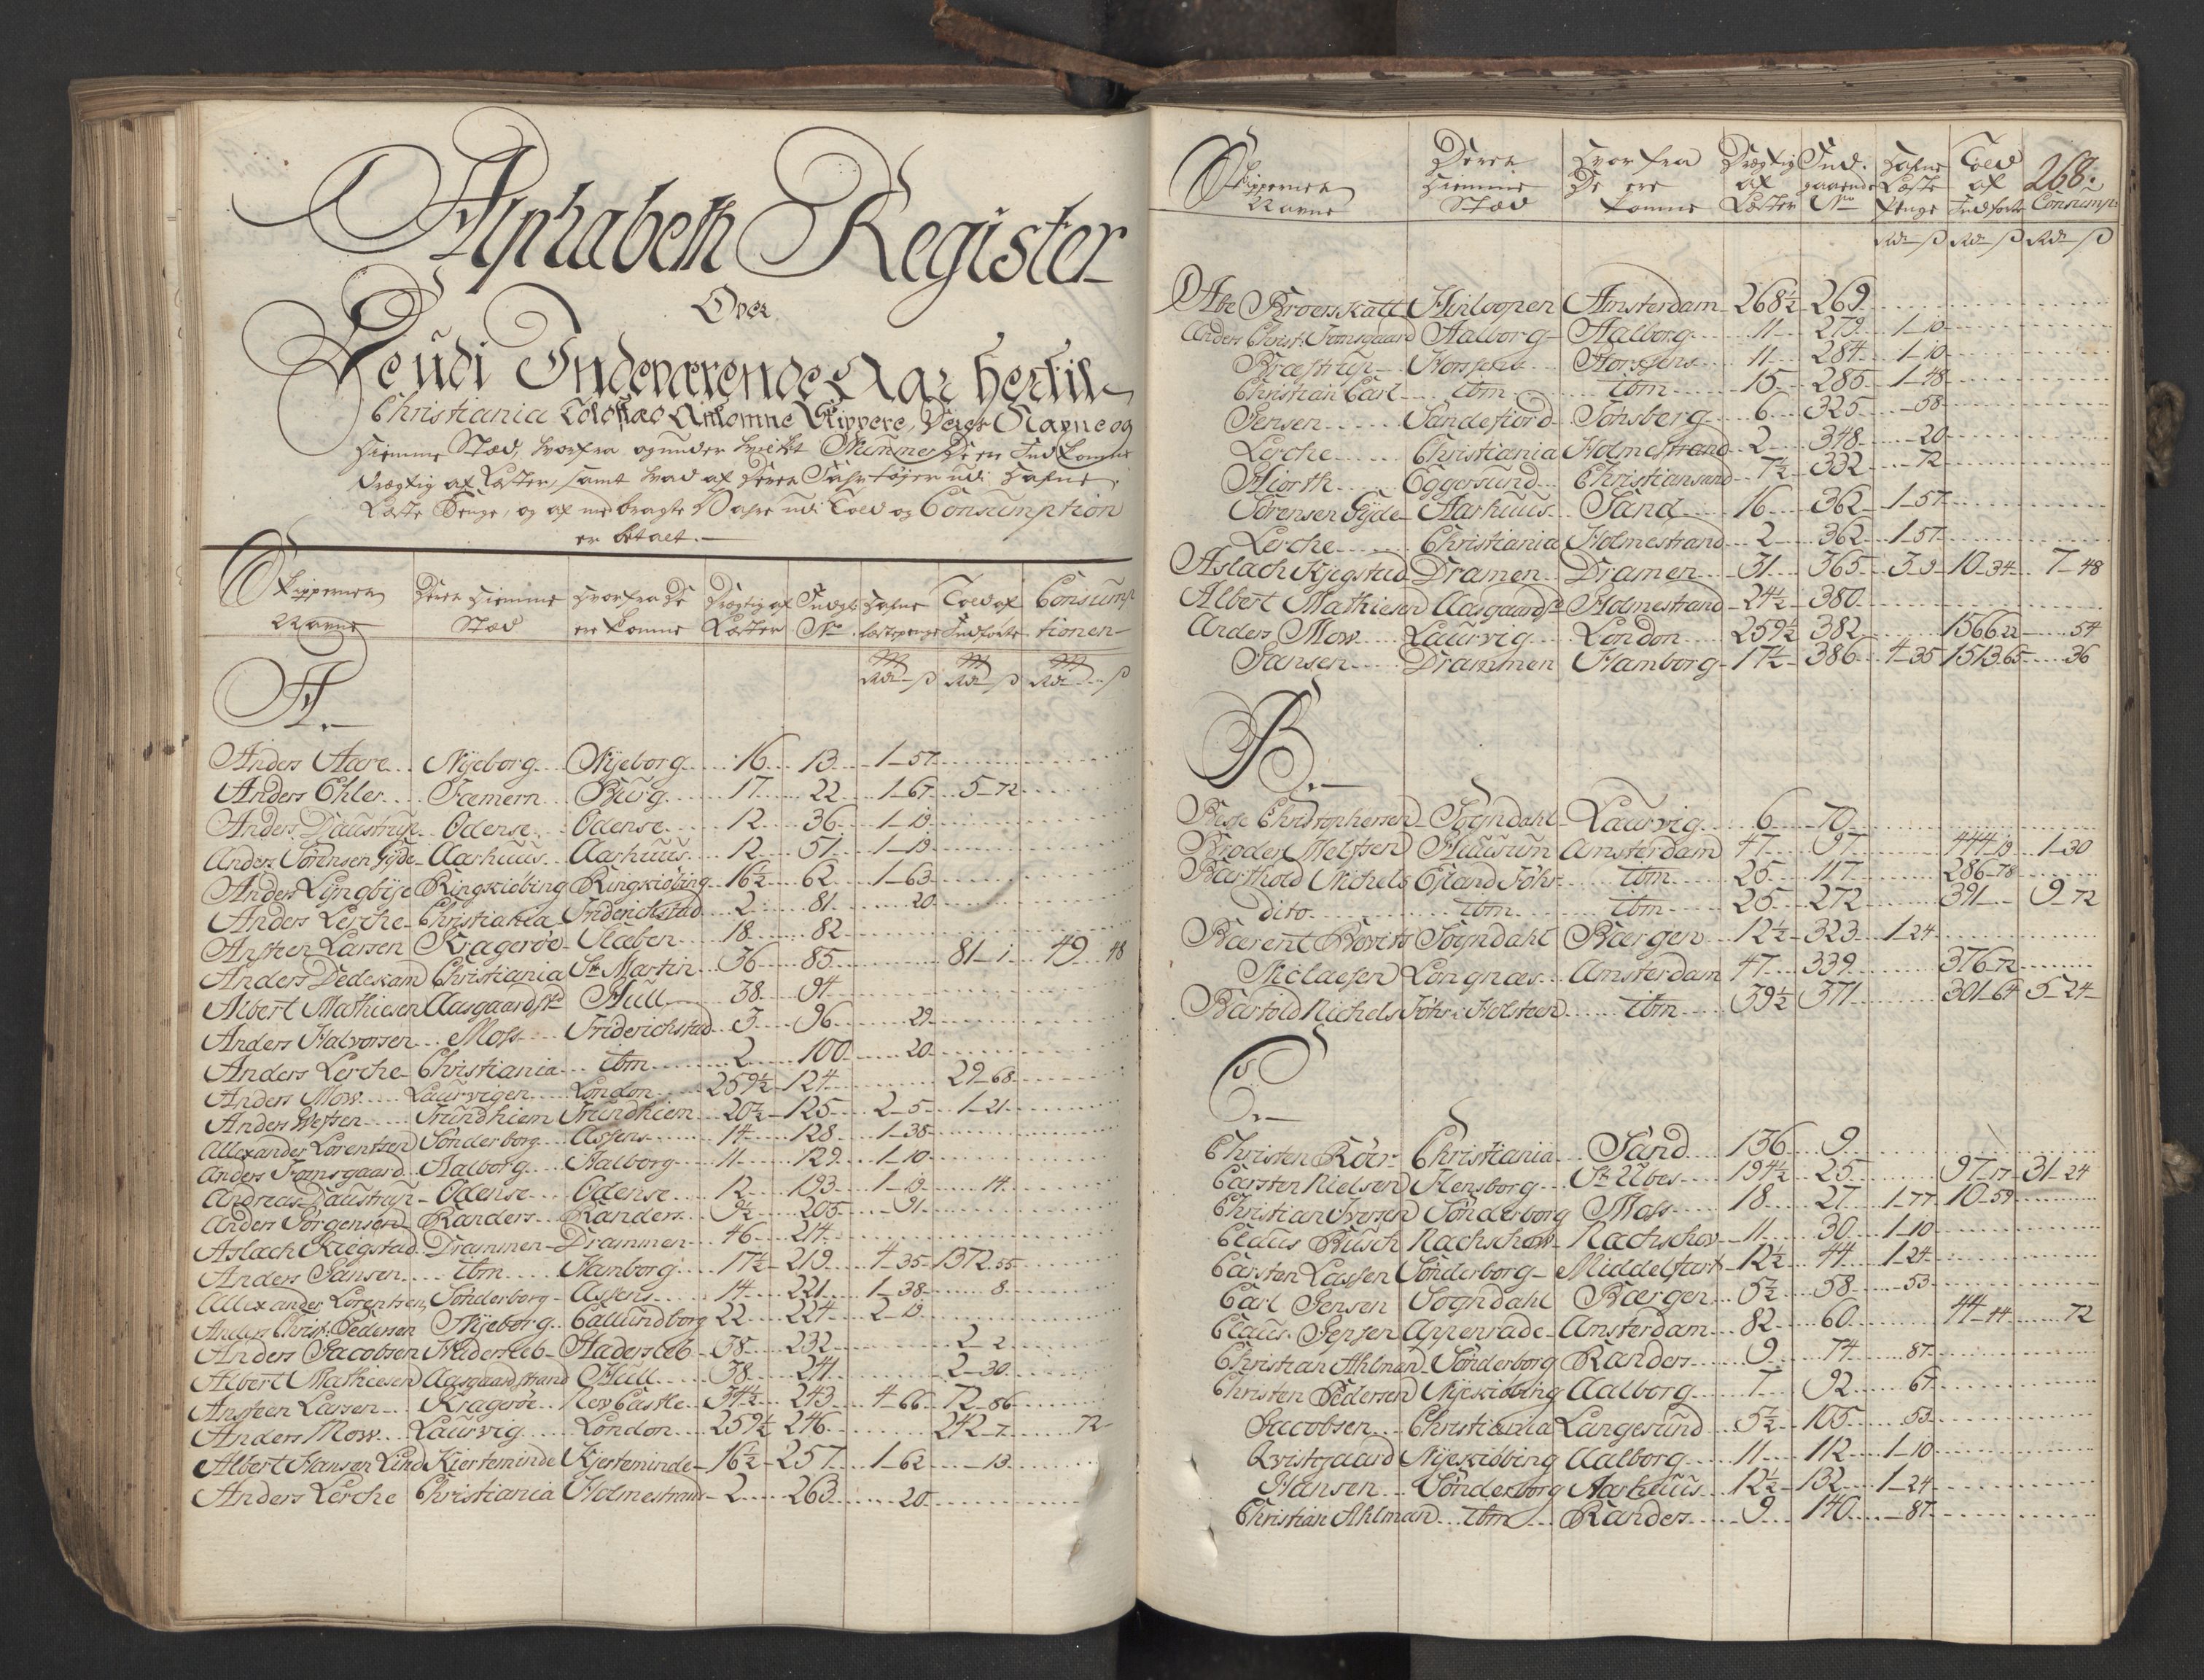 Alphabeth Register
Over
De udi Indeværende Aar hertil
Christiania Toldstad Ankomne Skippere, Deres Navne og
Hiemme Stæd, hvorfra og under hvilket Nummer De er Indkomne
Drægtig af Læster, samt hvad af Deres Fahrtøjer udi Hafne
Læste Penge, og af medbragte Vahre udi Told og Consumption
er betalt.
Skippernes Navne | Deres Hiemme Stæd | Hvorfra De ere komne | Drægtig af Læster | Indg: No | Hafne læstepenge | Told af Indførte | Consumptionen
Rdr ß Rdr ß Rdr ß
A.
Anders Aare Nyeborg Nyeborg 16 13 1-57
Anders Ehler Fæmern Burg 17 22 1-67 5-72
Anders Daustrup Odense Odense 12 36 1-19
Anders Sørensen Gyde Aarhuus Aarhuus 12 51 1-19
Anders Lyngbye Ringkiøbing Ringkiøbing 16½ 62 1-63
Anders Lerche Christiania Friderichstad 2 81 20
Ansteen Larsen Kragerøe 18 82
Anders Dedekam Christiania St Martin 36 85 81-1 49 48
Albert Mathiesen Aasgaardstd Hull 38 94
Anders Halvorsen Moss Friderichstad 3 96 29
Anders Lerche Christiania ibm 2 100 20
Anders Mow Laurvigen London 259½ 124 29-68
Anders Wessen Trundhiem Trundhiem 20½ 125 2-5 1-21
Allexander Lorentzen Sønderborg Assens 14 128 1-38
Anders Tomsgaard Aalborg Aalborg 11 129 1-10
Andreas Daustrup Odense Odense 12 193 1-19 14
Anders Jørgensen Randers Randers 9½ 205 91
Aslach Kiegstad Drammen Drammen 46 214
Anders Jansen ibm Hamborg 17½ 219 4-35 1372 55
Allexander Lorentzen Sønderborg Assens 14 221 1-38 8
Anders Christ: Pedersen Nyeborg Callundborg 22 224 2-19
Anders Jacobsen Hadersleb Hadersleb 38 232 2-2
Albert Mathiesen Aasgaardstrand Hull 38 241 2-30
Ansteen Larsen Kragerøe New Castle 34½ 243 4-66 72-86
Anders Mow Laurvig London 259½ 246 242-7 72
Albert Hansen Lind Kierteminde Kjerteminde 16½ 257 1-62 13
Anders Lerche Christiania Holmestrand 2 263 20
268.
Skippernes Navne | Deres Hiemme Stæd | Hvorfra De ere komne | Drægtig af Læster | Indgaaende No | Hafne Læste Penge | Told af Indførte | Consumpt:
Rdr ß Rdr ß Rdr ß
Abe Broerskatt Hinloopen Amsterdam 268½ 269
Anders Christ: Tomsgaard Aalborg Aalborg 11 279 1-10
Bræstrup Horsens Horsens 11 284 1-10
Christian Carl ibm ibm 15 285 1-48
Jensen Sandefiord Tønsberg 6 325 58
Lerche Christiania Holmestrand 2 348 20
Hiorth Eggersund Christiansand 7½ 332 72
Sørensen Gyde Aarhuus Sand 16 362 1-57
Lerche Christiania Holmestrand 2 362 1-57
Aslach Kjegstad Dramen Dramen 31 365 3-9 10-34 7-48
Albert Mathiesen Aasgaardsd Holmestrand 24½ 380
Anders Mow Laurvig London 259½ 382 1566 22 54
Jansen Drammen Hamborg 17½ 386 4-35 1513 65 36
B.
Christophersen Sogndahl Laurvig 6 70
Broder Melssen Huusum Amsterdam 47 97 444-19 1-30
Barthold Nichels Øland Föhr ibm 25 117 286-78
dito ibm ibm 25 272 391 9-72
Bærent Sogndahl Bærgen 12½ 323 1-24
Niclaesen Longnæs Amsterdam 47 339 376-72
Bartold Nichels Föhr i Holsteen ibm 39½ 371 301-64 5-24
C.
Christen Röer Christiania Sand 136 9
Carsten Nielsen Flensborg St Ubes 194½ 25 97-17 31-24
Christian Iversen Sønderborg Moss 18 27 1-77 10-59
Cldus Busch Nachschow Nachschov 11 30 1-10
Carsten Lassen Sønderborg Middelfart 12½ 44 1-24
Carl Jensen Sogndahl Bærgen 5½ 58 53
Claus Jepsen Appenrade Amsterdam 82 60 44-44 72
Christian Ahlman Sønderborg Randers 9 74 87
Christen Pedersen Nyekiøbing Aalborg 7 92 67
Jacobsen Christiania Langesund 5½ 105 53
Qvistgaard Nyekiøbing Aalborg 11 112 1-10
Hansen Sønderborg Aarhuus 12½ 132 1-24
Christian Ahlman ibm Randers 9 140 87